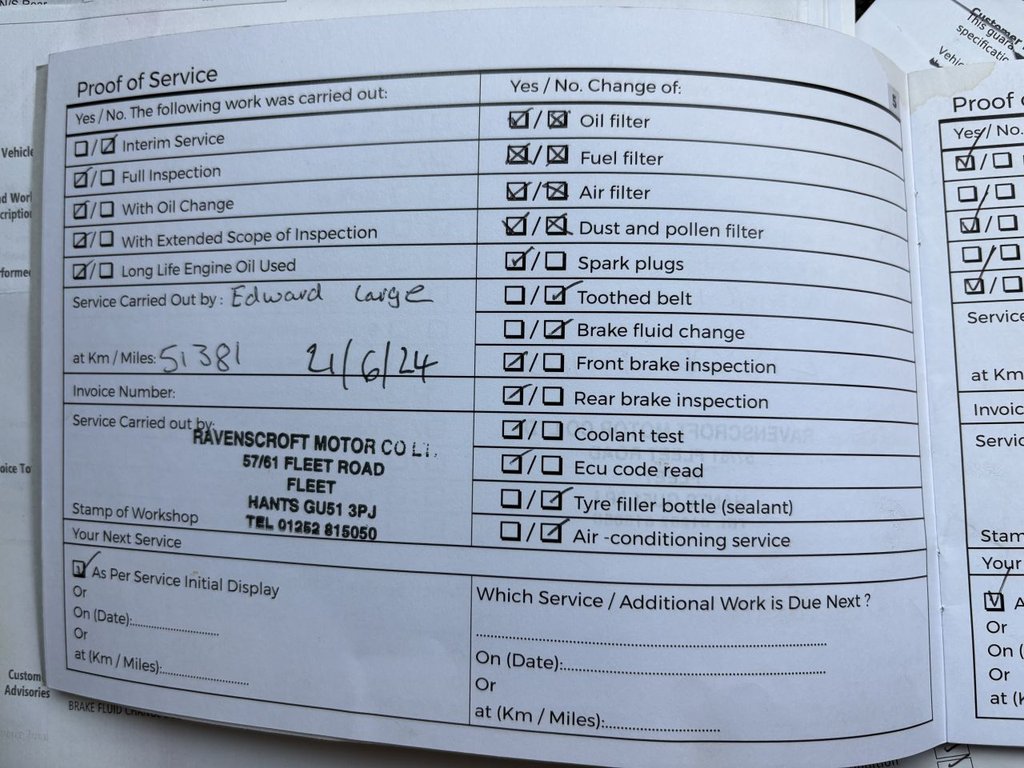 N/S Rear
Customer
This guara
specificatio
Vehic
Proof of Service
Yes / No. The following work was carried out:
☐/☑ Interim Service
☑/☐ Full Inspection
☑/☐ With Oil Change
☑/☐ With Extended Scope of Inspection
☑/☐ Long Life Engine Oil Used
Service Carried Out by: Edward Large
at Km / Miles: 51381 21/6/24
Invoice Number:
Service Carried out by:
RAVENSCROFT MOTOR CO LT.
57/61 FLEET ROAD
FLEET
HANTS GU51 3PJ
TEL 01252 815050
Stamp of Workshop
Your Next Service
☑ As Per Service Initial Display
Or
On (Date):
Or
at (Km / Miles):
Yes / No. Change of:
☑/☒ Oil filter
☒/☒ Fuel filter
☑/☒ Air filter
☑/☒ Dust and pollen filter
☑/☐ Spark plugs
☐/☑ Toothed belt
☐/☑ Brake fluid change
☑/☐ Front brake inspection
☑/☐ Rear brake inspection
☑/☐ Coolant test
☑/☐ Ecu code read
☐/☑ Tyre filler bottle (sealant)
☐/☑ Air -conditioning service
Which Service / Additional Work is Due Next ?
On (Date):
Or
at (Km / Miles):
5
Proof o
Yes / No.
Service
at Km
Invoic
Servic
Stam
Your
☑ A
Or
On (
Or
at (K
Vehicle
d Wor
criptio
forme
oice To
Custom
Advisories
BRAKE FLUID CHAN